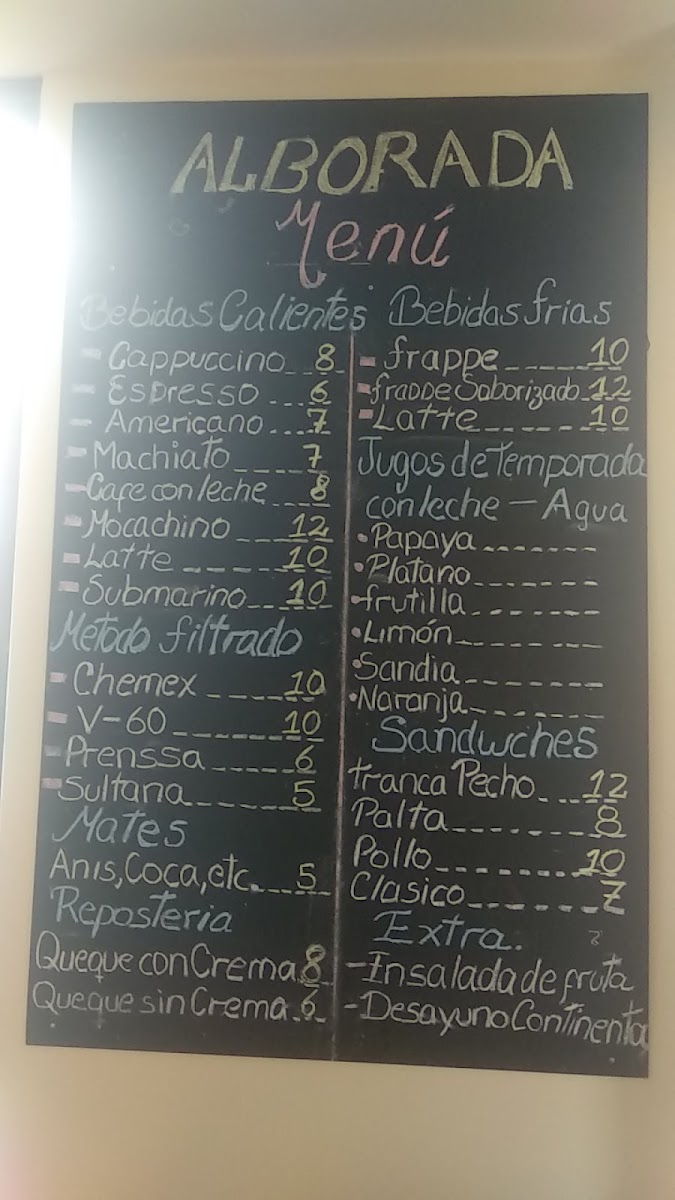 ALBORADA
Menú
Bebidas Calientes
- Cappuccino 8
- Espresso 6
- Americano 7
- Machiato 7
- Cafe con leche 8
- Mocachino 12
- Latte 10
- Submarino 10
Metodo filtrado
- Chemex 10
- V-60 10
- Prenssa 6
- Sultana 5
Mates
Anis, Coca, etc. 5
Reposteria
Queque con Crema 8
Queque sin Crema 6
Bebidas frias
- frappe 10
- frappe Saborizado 12
- Latte 10
Jugos de temporada
con leche - Agua
• Papaya
• Platano
• frutilla
• Limón
• Sandia
• Naranja
Sandwches
tranca Pecho 12
Palta 8
Pollo 10
Clasico 7
Extra.
- Insalada de fruta
- Desayuno Continenta